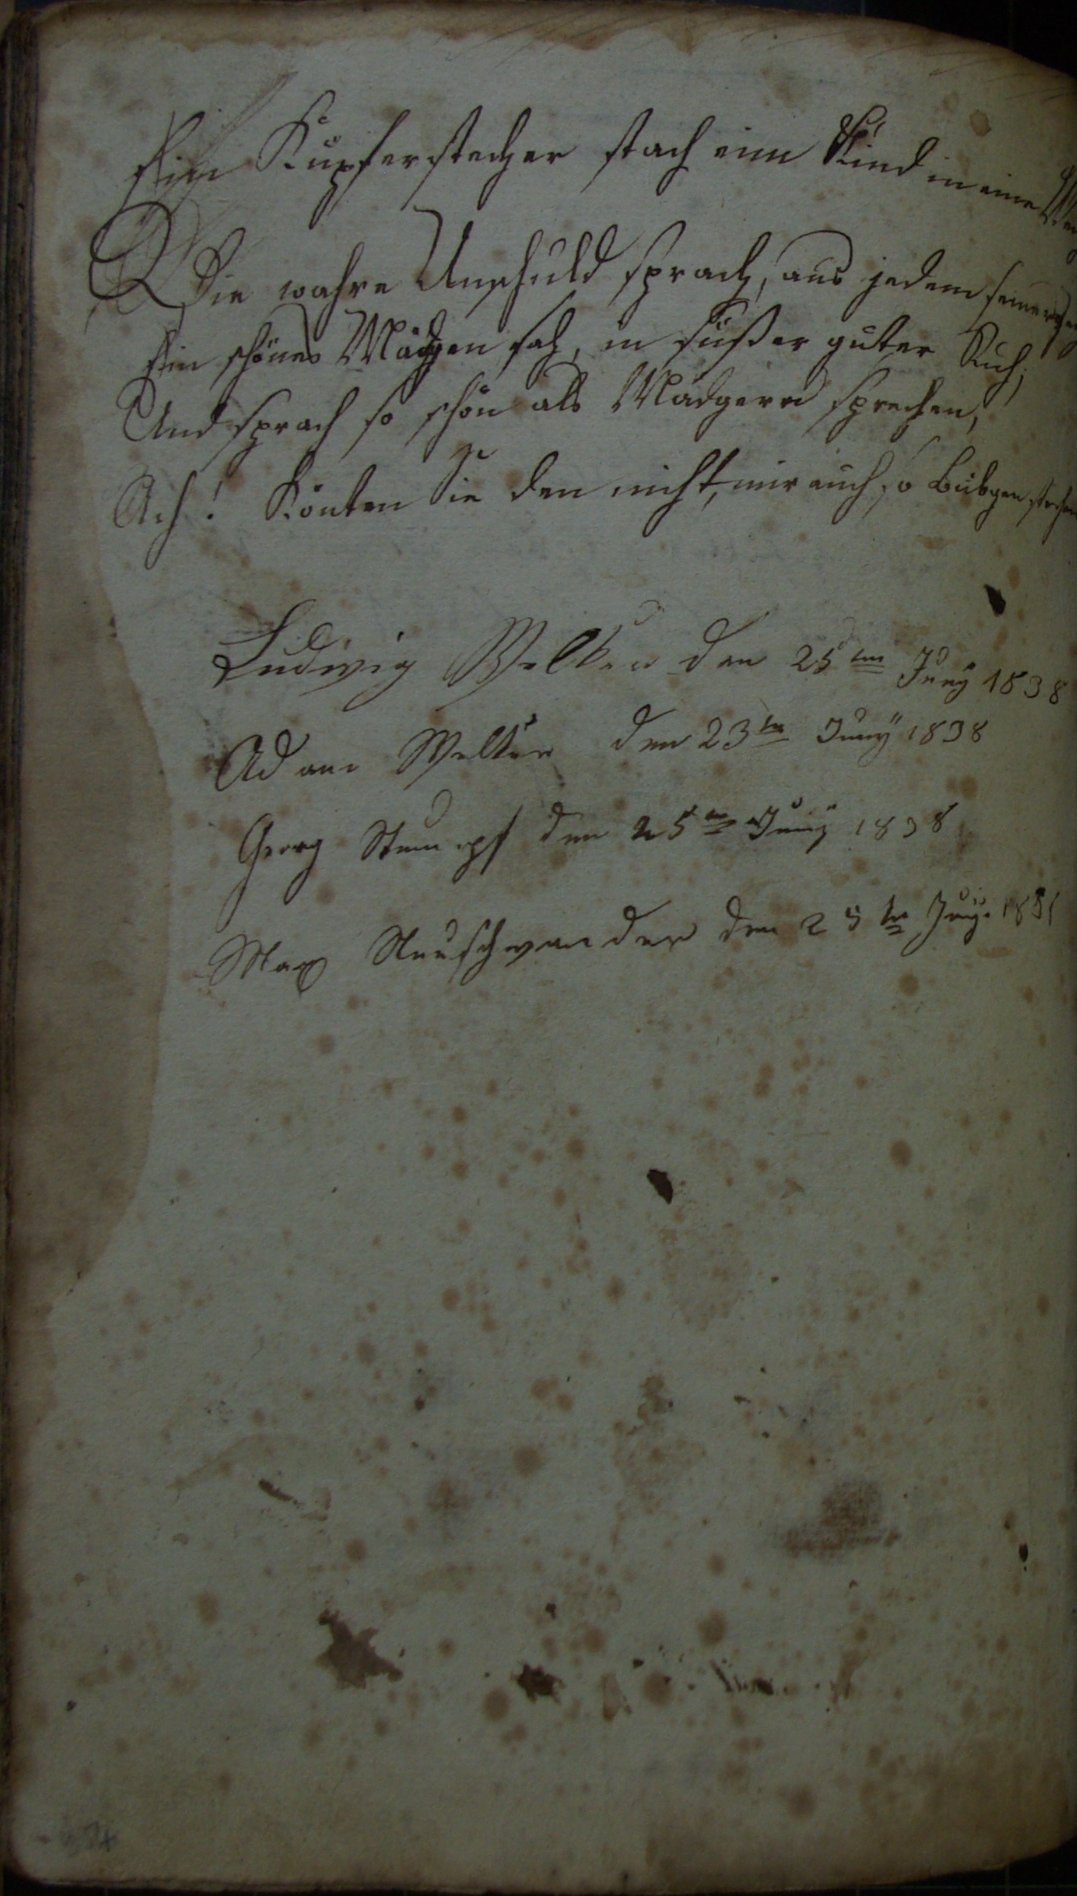 Ein Kupferstecher stach ein Kind in eine
Die wahre Unschuld sprach, aus jedem seiner
Ein schönes Mädgen sah, in süßer guter Ruh,
Und sprach so schön als Mädgern sprechen,
Ach! Könten Sie den nicht, mir auch so Bübgen stechen
Ludwig Welker den 25ten Juny 1838
Adam Welker den 23tn Juny 1838
Georg Stumpf den 25tn Juny 1838
Max Neuschwander den 25tn Juny